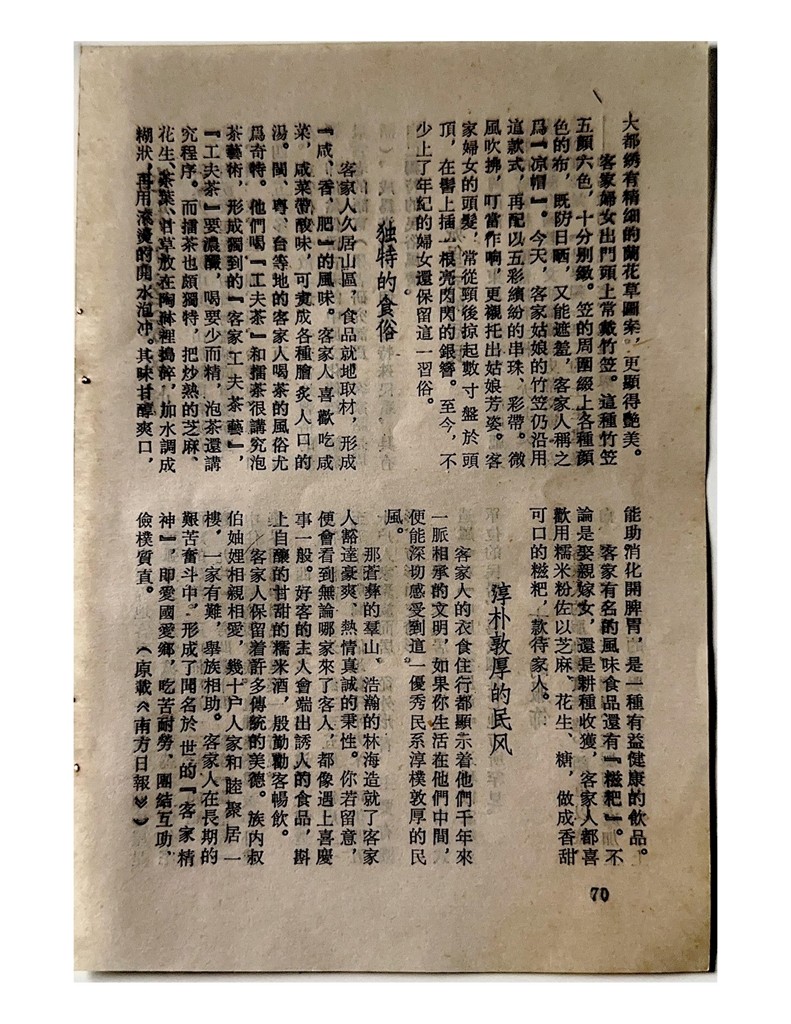 大都綉有精細的蘭花草圖案，更顯得艷美。
客家婦女出門頭上常戴竹笠。這種竹笠
五顏六色，十分别緻。笠的周圍綴上各種顏
色的布，既防日晒，又能遮羞，客家人稱之
爲『凉帽』。今天，客家姑娘的竹笠仍沿用
這款式，再配以五彩繽紛的串珠、彩帶。微
風吹拂，叮當作响，更襯托出姑娘芳姿。客
家婦女的頭髮，常從頸後掠起數寸盤於頭
頂，在髻上插一根亮閃閃的銀簪。至今，不
少上了年紀的婦女還保留這一習俗。
独特的食俗
客家人久居山區，食品就地取材，形成
『咸、香、肥』的風味。客家人喜歡吃咸
菜，咸菜帶酸味，可煮成各種膾炙人口的
湯。閩、粵、台等地的客家人喝茶的風俗尤
爲奇特。他們喝『工夫茶』和擂茶很講究泡
茶藝術，形成獨到的『客家工夫茶藝』，
『工夫茶』要濃釅，喝要少而精，泡茶還講
究程序。而擂茶也頗獨特，把炒熟的芝麻、
花生、茶葉、甘草放在陶鉢裡搗碎，加水調成
糊狀，再用滾燙的開水泡冲。其味甘醇爽口，
能助消化開脾胃，是一種有益健康的飲品。
客家有名的風味食品還有『糍粑』。不
論是娶親嫁女，還是耕種收獲，客家人都喜
歡用糯米粉佐以芝麻、花生、糖，做成香甜
可口的糍粑，款待客人。
淳朴敦厚的民风
客家人的衣食住行都顯示着他們千年來
一脈相承的文明，如果你生活在他們中間，
便能深切感受到這一優秀民系淳樸敦厚的民
風。
那蒼彝的羣山、浩瀚的林海造就了客家
人豁達豪爽、熱情真誠的秉性。你若留意，
便會看到無論哪家來了客人，都像遇上喜慶
事一般。好客的主人會端出誘人的食品，斟
上自釀的甘甜的糯米酒，殷勤勸客暢飲。
客家人保留着許多傳統的美德。族内叔
伯妯娌相親相愛，幾十户人家和睦聚居一
樓，一家有難，舉族相助。客家人在長期的
艱苦奮斗中，形成了聞名於世的『客家精
神』，即愛國愛鄉，吃苦耐勞、團結互助，
儉樸質直。　（原載《南方日報》）
70